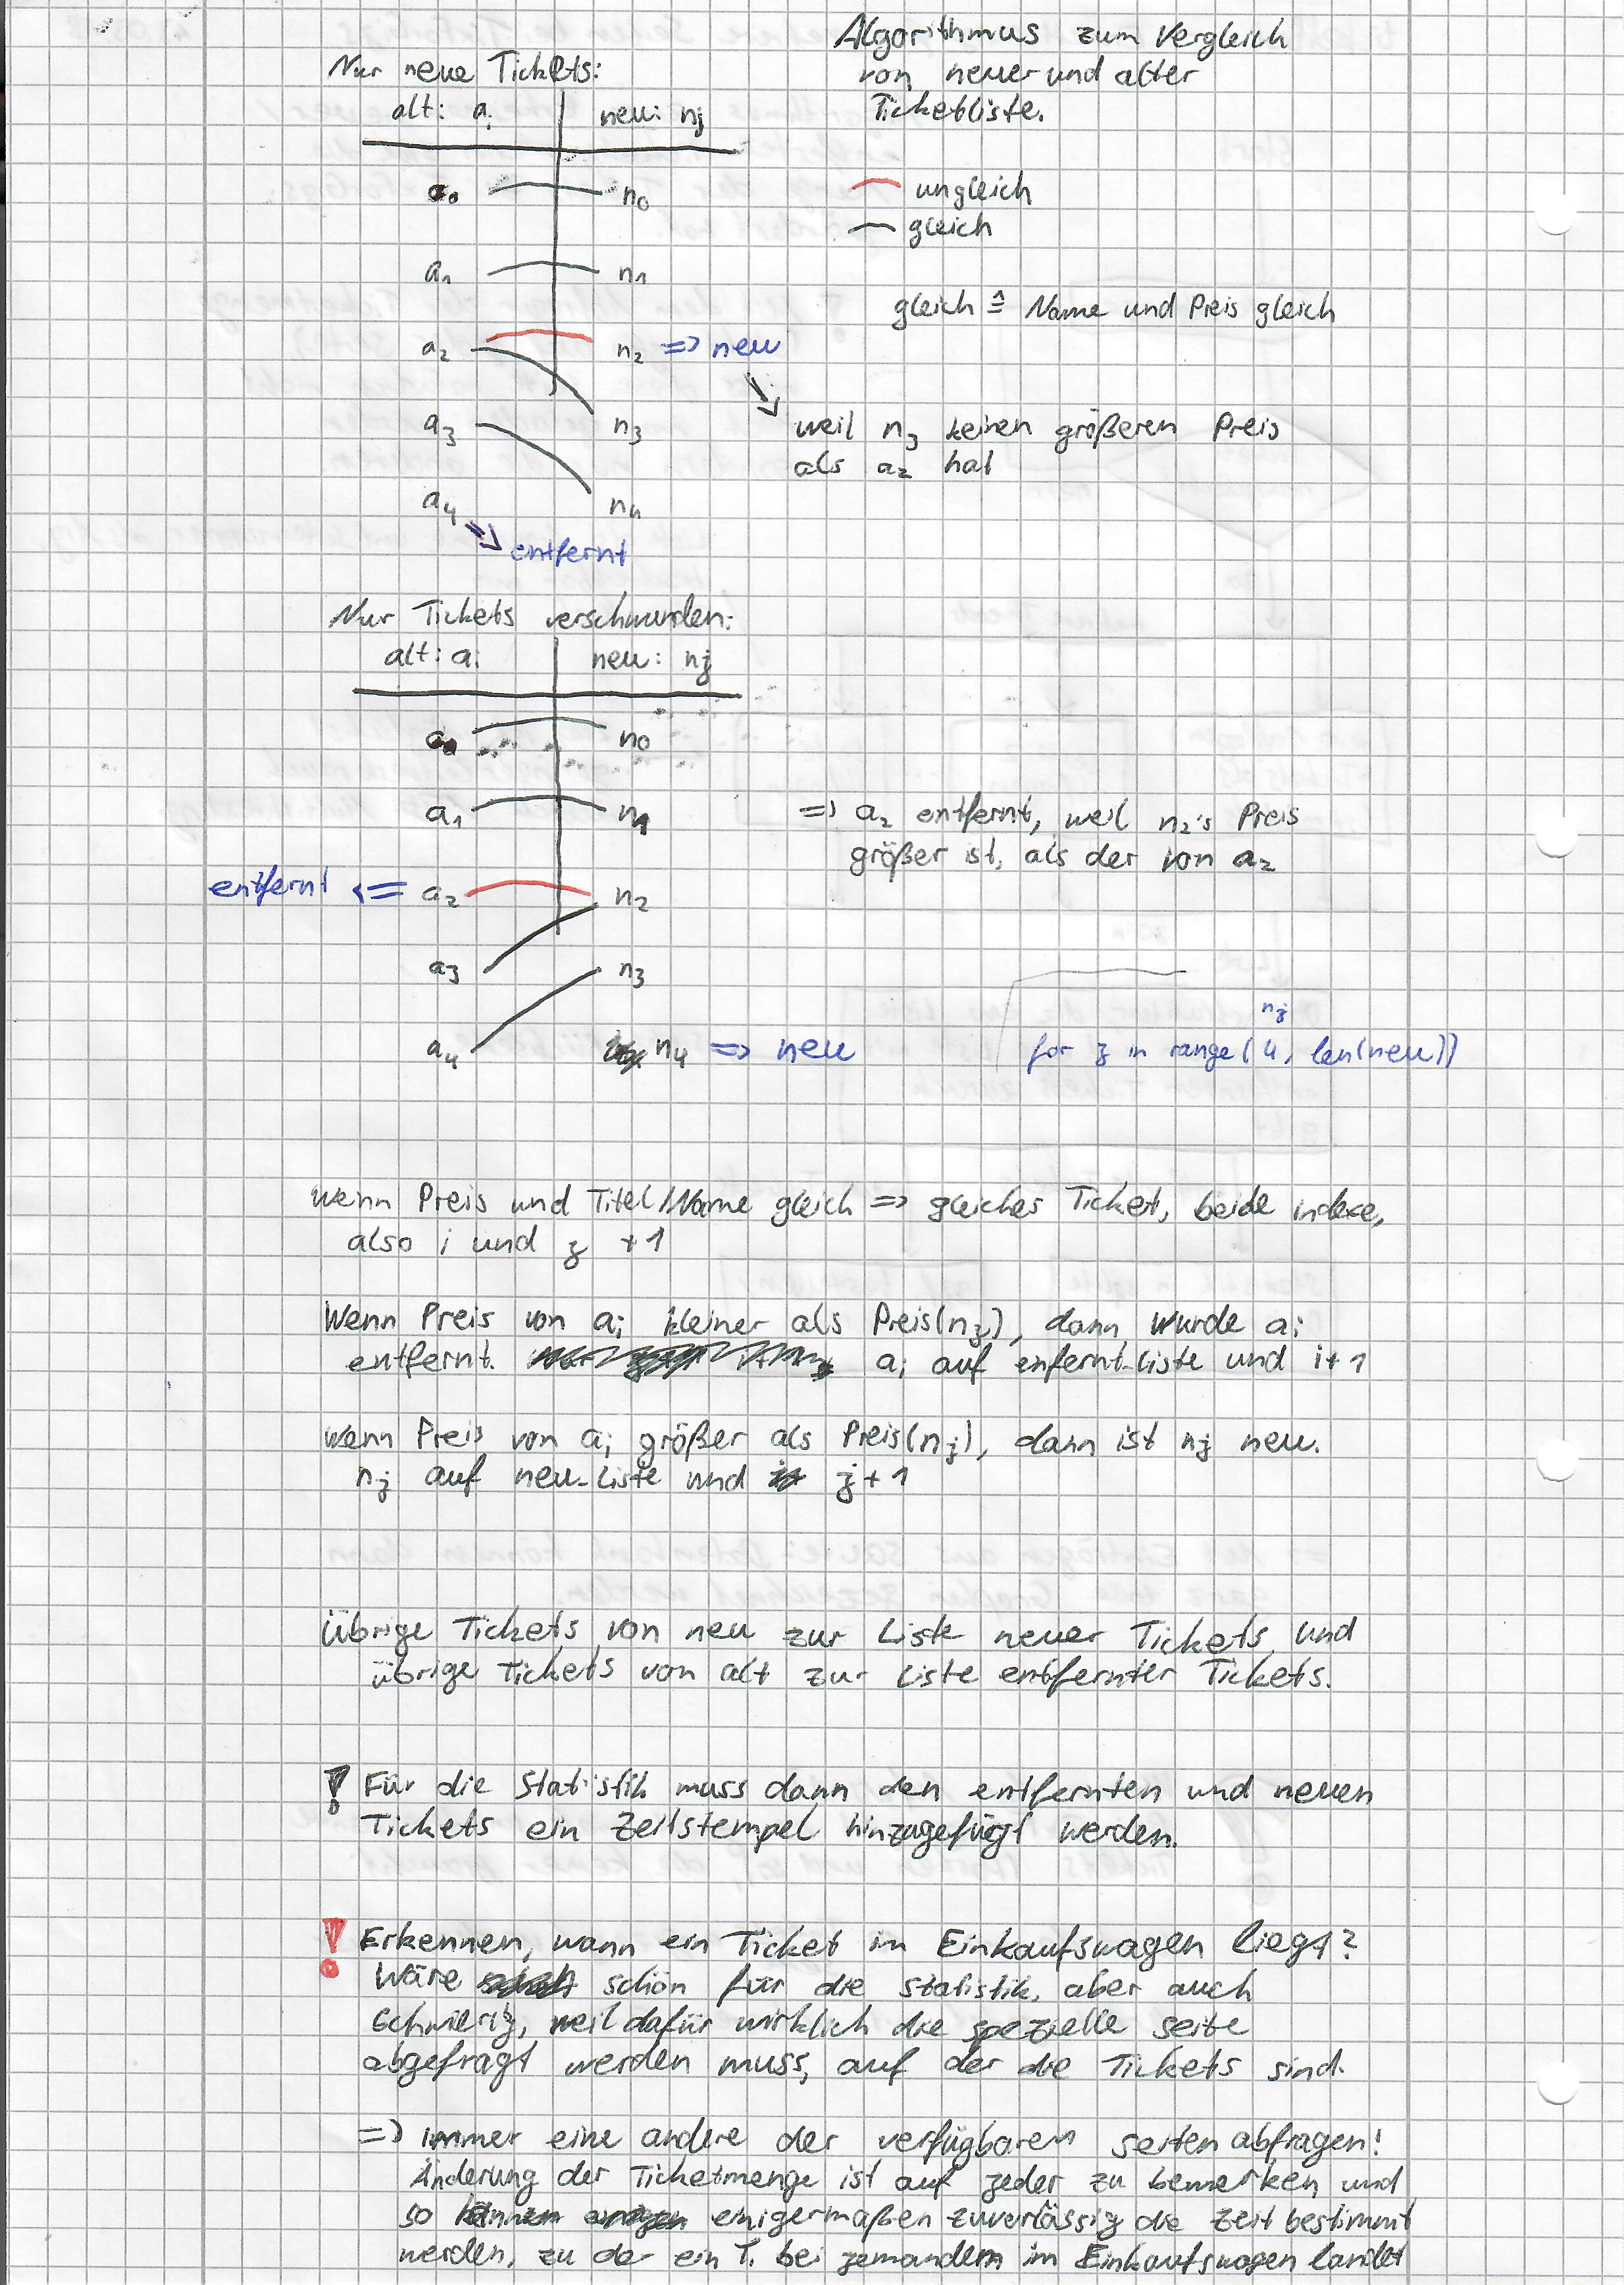 Algorithmus zum Vergleich
von neuer und alter
Ticketliste.
Nur neue Tickets:
alt: ai
neu: nj
a0 n0
ungleich
gleich
a1 n1
gleich ≙ Name und Preis gleich
a2 n2 => neu
a3 n3
weil n3 keinen größeren Preis
als a2 hat
a4 n4
=> entfernt
Nur Tickets verschwunden:
alt: ai
neu: nj
a0 n0
a1 n1
=> a2 entfernt, weil n2's Preis
größer ist, als der von a2
entfernt <= a2 n2
a3 n3
nj
a4 n4 => neu
for j in range(4, len(neu))
Wenn Preis und Titel/Name gleich => gleiches Ticket, beide indexe,
also i und j +1
Wenn Preis von ai kleiner als Preis(nj), dann wurde ai
entfernt. ai auf enfernt-Liste und i+1
Wenn Preis von ai größer als Preis(nj), dann ist nj neu.
nj auf neu-Liste und j+1
Übrige Tickets von neu zur Liste neuer Tickets und
übrige Tickets von alt zur Liste entfernter Tickets.
! Für die Statistik muss dann den entfernten und neuen
Tickets ein Zeitstempel hinzugefügt werden.
! Erkennen, wann ein Ticket im Einkaufswagen liegt?
Wäre schön für die Statistik, aber auch
Schwierig, weil dafür wirklich die spezielle Seite
abgefragt werden muss, auf der die Tickets sind.
=> immer eine andere der verfügbaren Seiten abfragen!
Änderung der Ticketmenge ist auf jeder zu bemerken und
so einigermaßen zuverlässig die Zeit bestimmt
werden, zu der ein T. bei jemandem im Einkaufswagen landet